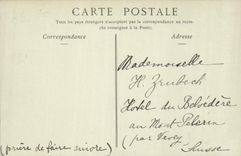 CARTE POSTALE
Tous les pays étrangers n'acceptent pas la correspondance au recto.
(Se renseigner à la Poste).
Correspondance
Adresse
Mademoiselle
H. Zrubech
Hotel du Belvédère
au Mont Pelerin
(par Vevey
Suisse
(prière de faire suivre)